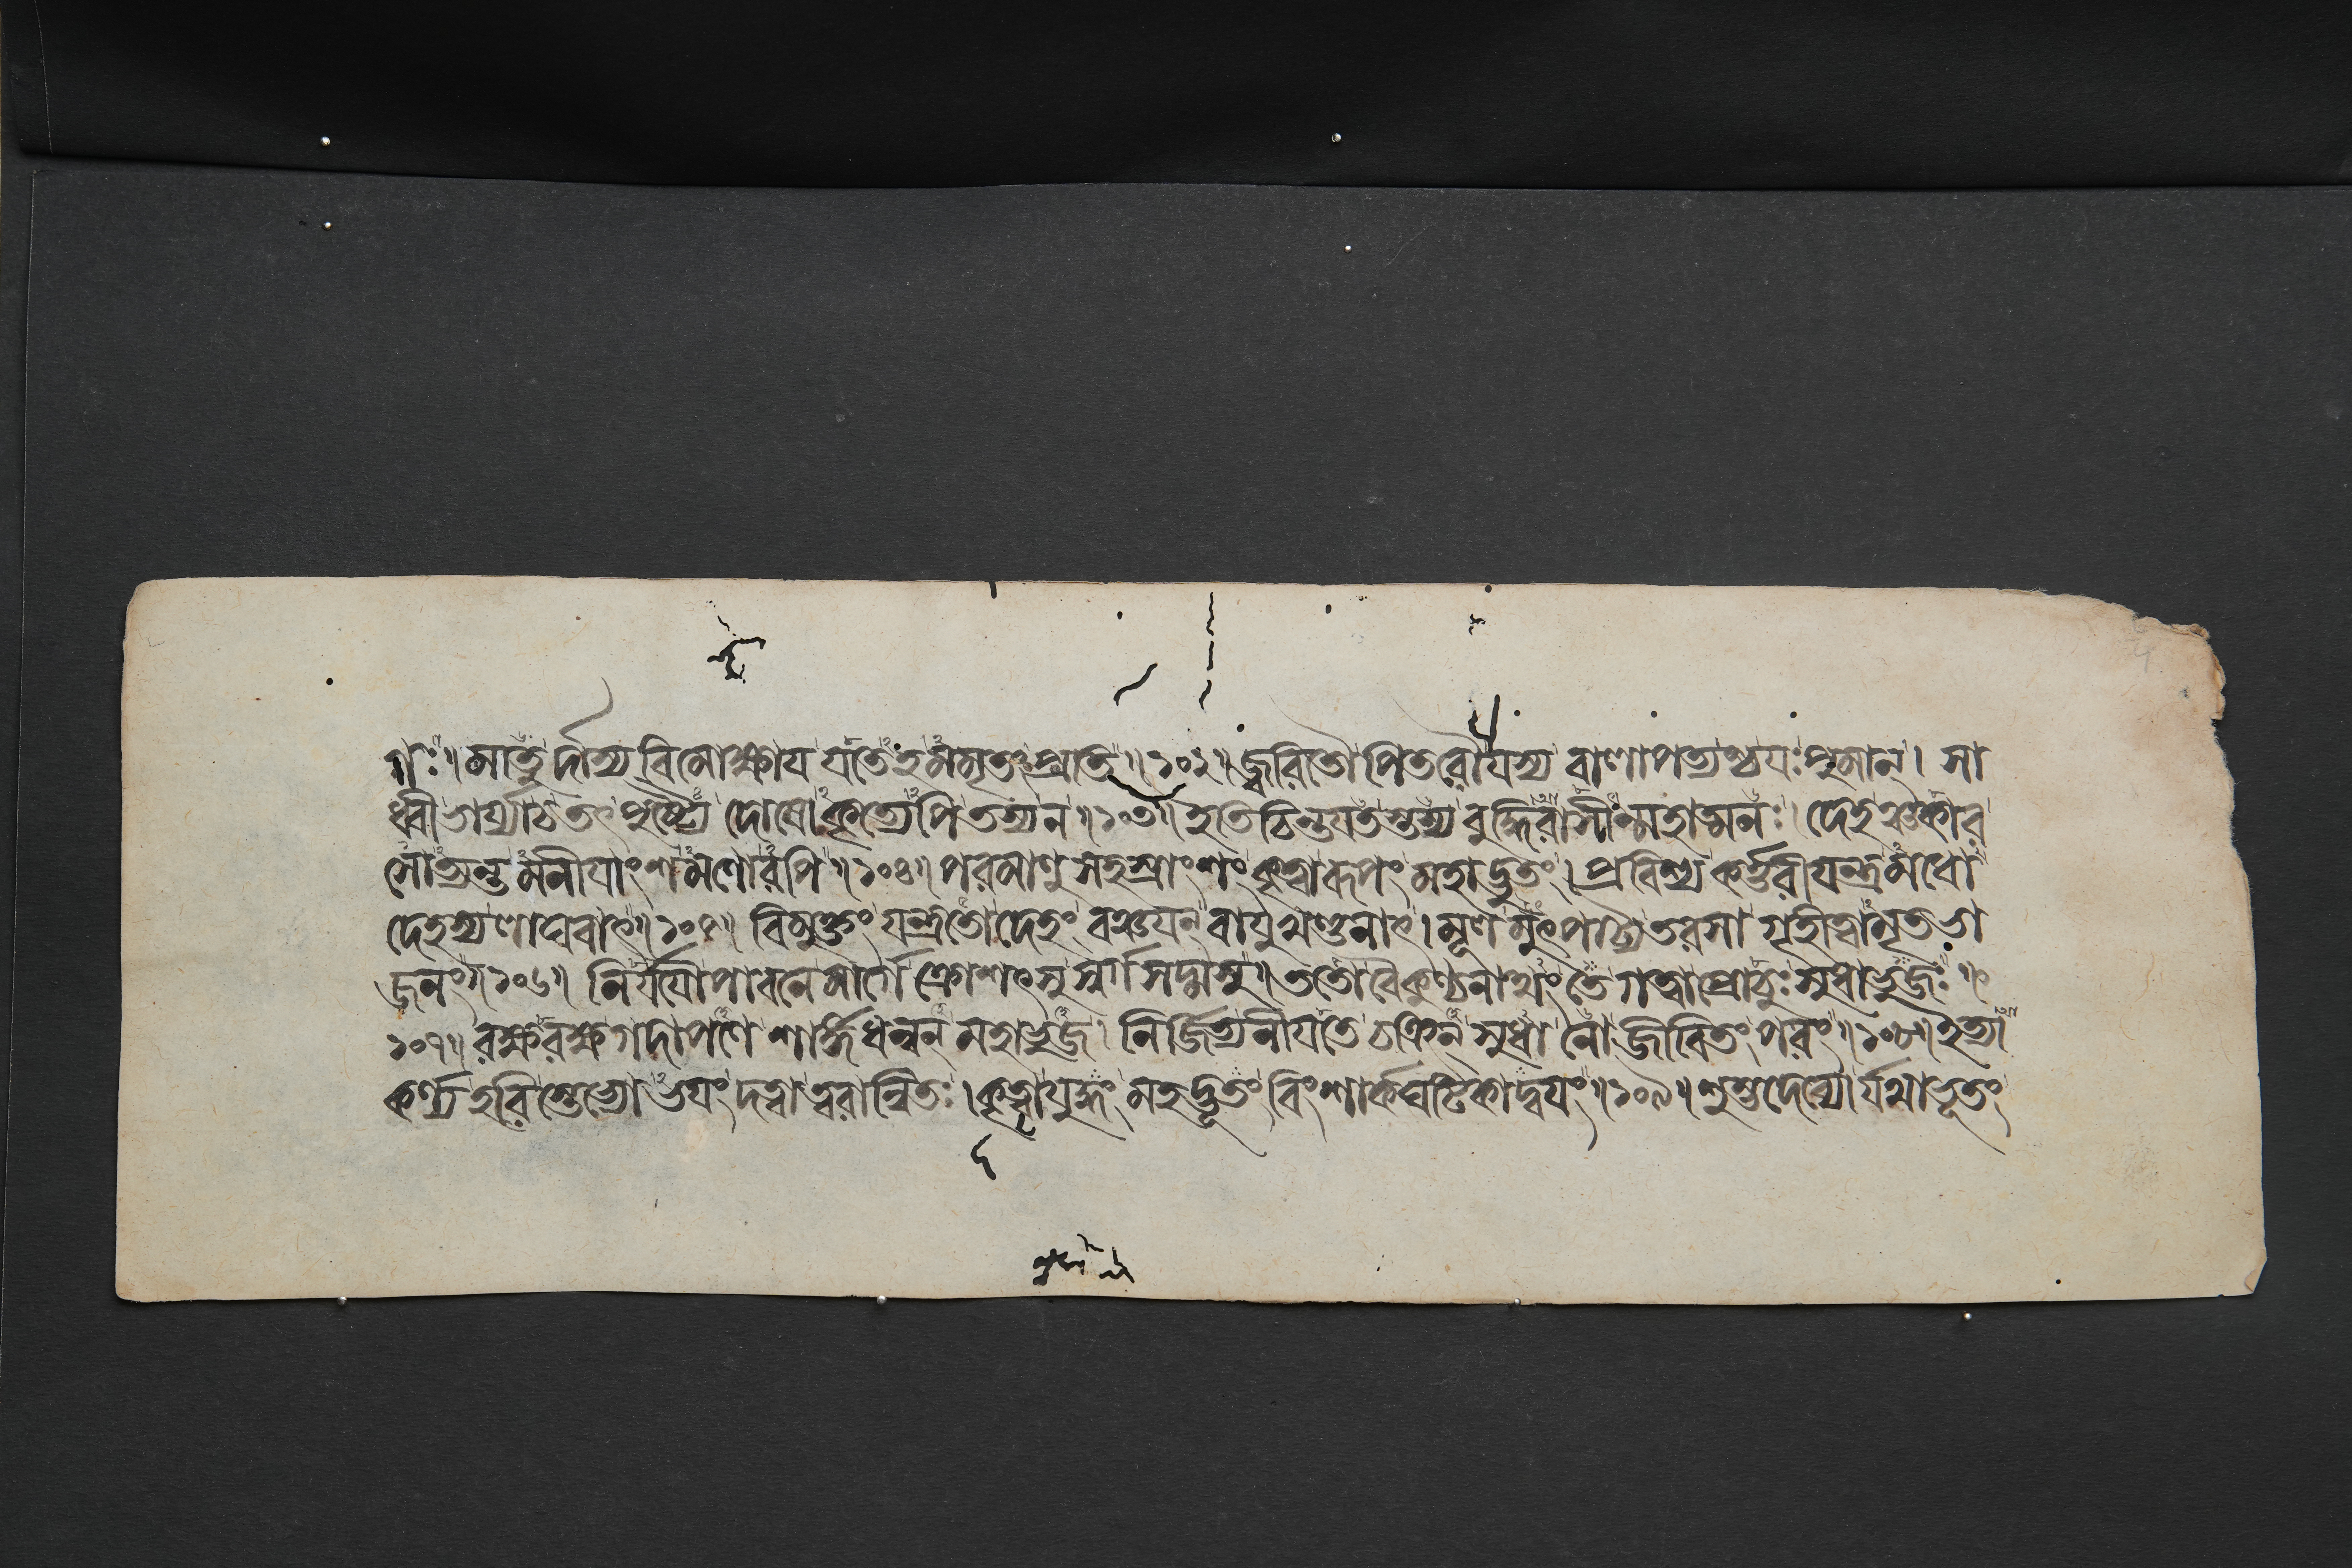 গঃ॥ মাতুর্দাস্য বিমোক্ষায যতেহমমৃতং প্রতি॥১০২॥ জ্বরিতৌ পিতরৌ যস্য বালাপত্যশ্চ যঃ পুমান্। সা
ধ্বী ভার্য্যা চ তৎ পুষ্ট্যৈ দোষো কৃত্যেপি তস্য ন॥১০৩॥ ইতি চিন্তযতস্তস্য বুদ্ধিরাসীন্মহাত্মনঃ। দেহঞ্চকার
সোত্যন্তমনীযাংশমণোরপি॥১০৪॥ পরমাণুসহস্রাংশং কৃত্বা রূপং মহাদ্ভুতং। প্রবিশ্য কর্ত্তরী যন্ত্রমধো
দেহস্য লাঘবাৎ॥১০৫॥ বিমুক্তং যন্ত্রতো দেহং বঞ্চযন্ বাযুখণ্ডনাৎ। মূলমুৎপাট্য তরসা গৃহীত্বামৃতভা
জনং॥১০৬॥ নির্যযৌ পাবনে মার্গে ক্রোশৎসু সদ্মসু॥ ততো বৈকুণ্ঠনাথং তে গত্বা প্রোচুঃ সুধাভুজঃ॥
১০৭॥ রক্ষ রক্ষ গদাপাণে শার্ঙ্গিধন্বন্ মহাভুজ। নির্জিত্য নীযতে চক্রিন্ সুধা নো জীবিতং পরং॥১০৮॥ ইত্যা
কর্ণ্য হরিস্তেভ্যোভযং দত্বা ত্বরান্বিতঃ। কৃত্বা যুদ্ধং মহদ্ভূতং বিংশার্কঘটিকাদ্বযং॥১০৯॥ শুম্ভদেব্যোর্যথাভূতং